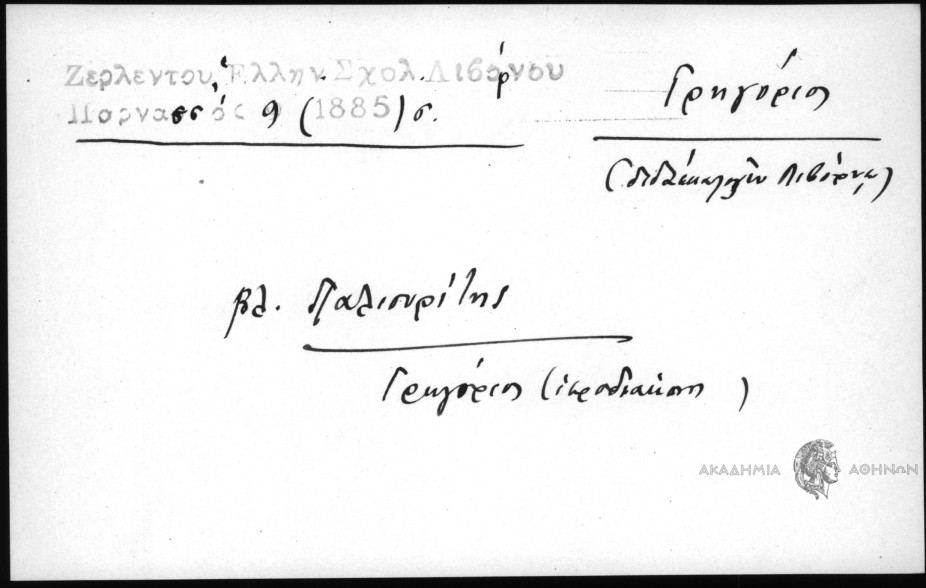 Ζερλεντου, Ἑλλην. Σχολ. Λιβόρνου
Παρνασσός 9 (1885) σ.
Γρηγόριος
(διδάσκαλος ἐν Λιβόρνῳ)
βλ. Παλιουρίτης
Γρηγόριος (ἱεροδιάκονος)
ΑΚΑΔΗΜΙΑ ΑΘΗΝΩΝ